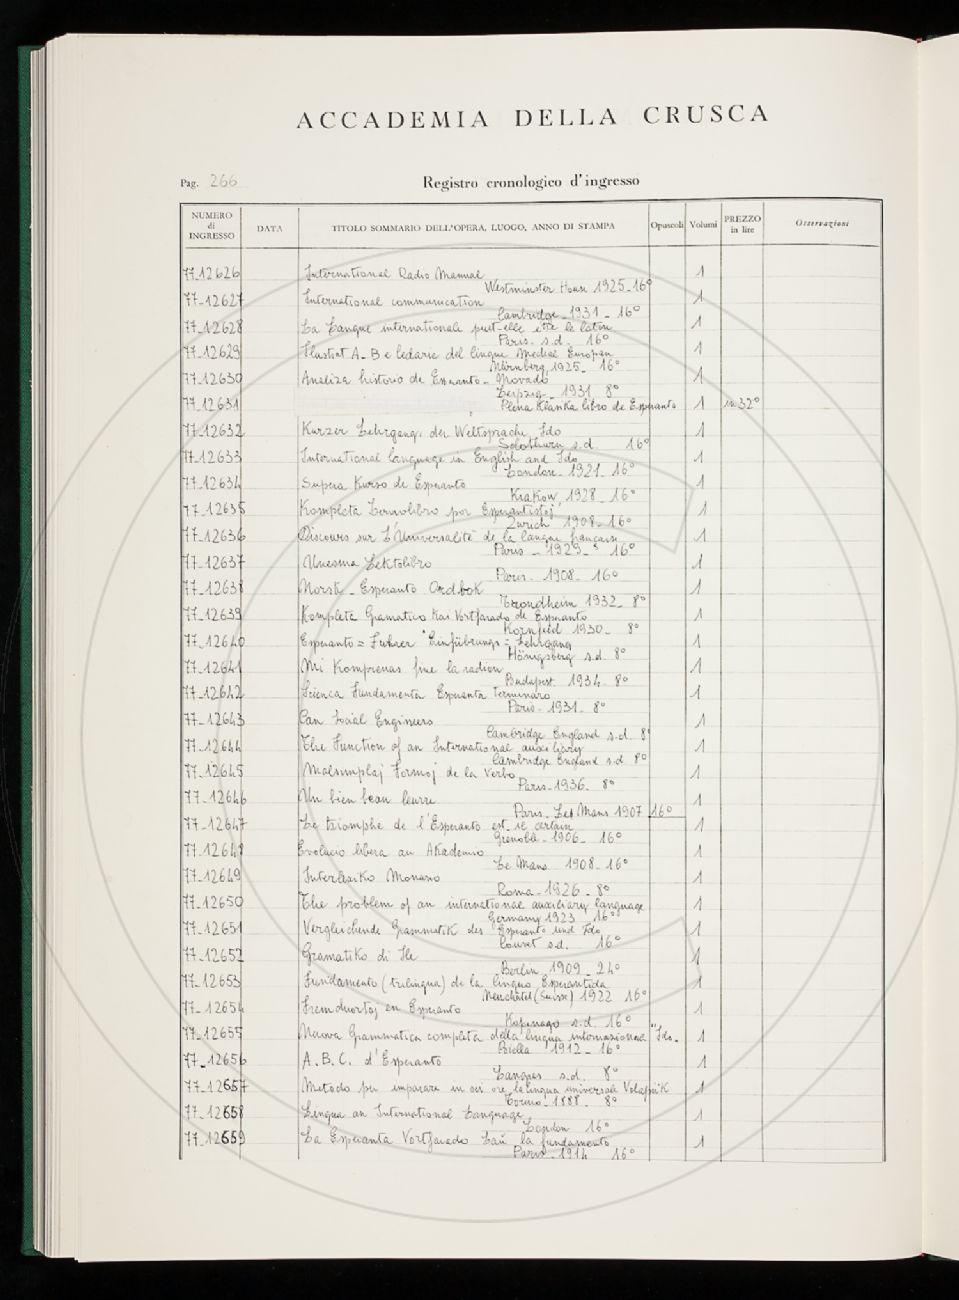 ACCADEMIA DELLA CRUSCA
Pag. 266
Registro cronologico d'ingresso
NUMERO di INGRESSO DATA TITOLO SOMMARIO DELL'OPERA, LUOGO, ANNO DI STAMPA Opuscoli Volumi PREZZO in lire Osservazioni
77-12626 International Radio Manual 1
Westminster House 1925-16°
77-12627 International communication 1
Cambridge - 1931 - 16°
77-12628 La Langue internationale peut-elle être le latin 1
Paris. s.d. 16°
77-12629 Ilustrat A-B e ledarie del lingue Medial Europan 1
Nürnberg, 1925- 16°
77-12630 Analiza historio de Esperanto-Movado 1
Leipzig - 1931 8°
77-12631 Plena Klasika libro de Esperanto 1 in 32°
77-12632 Kurzer Lehrgang. der Weltsprache Ido 1
Solothurn s.d. 16°
77-12633 International language in English and Ido 1
London - 1921 - 16°
77-12634 Supera Kurso de Esperanto 1
Krakow, 1928 - 16°
77-12635 Kompleta Lernolibro por Esperantistoj 1
Zurich 1908-16°
77-12636 Discours sur L'Universalité de la langue française 1
Paris - 1929- 16°
77-12637 Unesma Lektolibro 1
Paris. 1908- 16°
77-12638 Norsk - Esperanto Ordbok 1
Trondheim 1932- 8°
77-12639 Kompleta Gramatico Kai Vortfarado de Esperanto 1
Kornfeld 1930- 8°
77-12640 Esperanto = Fuhrer Einführungs = Lehrgang 1
Hönigsberg s.d. 8°
77-12641 Mi Komprenas fine la radion 1
Budapest. 1934- 8°
77-12642 Scienca Fundamenta Esperanta Terminaro 1
Paris - 1931- 8°
77-12643 Can Social Engineers 1
Cambridge England s.d. 8°
77-12644 The Function of an International auxiliary 1
Cambridge England s.d. 8°
77-12645 Malsimplaj Formoj de la Verbo 1
Paris-1936- 8°
77-12646 Un bien beau leurre 1
Paris- Les Mans 1907 16°
77-12647 Le triomphe de l'Esperanto est-il certain 1
Grenoble - 1906- 16°
77-12648 Evolucio libera au Akademio 1
Le Mans 1908-16°
77-12649 Interlexiko Monano 1
Roma - 1926 - 8°
77-12650 The problem of an international auxiliary language 1
Germany 1923 16°
77-12651 Vergleichende Grammatik des Esperanto und Ido 1
Couvet s.d. 16°
77-12652 Gramatiko di Ile 1
Berlin 1909 - 24°
77-12653 Fundamento (trilingua) de la lingua Esperantida 1
Neuchâtel (Suisse) 1922 16°
77-12654 Fremdvortoj en Esperanto 1
Kopenago s.d. 16°
77-12655 Nuova Grammatica completa della lingua internazionale "Ido- 1
Biella 1912 - 16°
77-12656 A.B.C. d'Esperanto 1
Langres s.d. 8°
77-12657 Metodo per imparare in sei ore la lingua universale Volapük 1
Torino - 1888- 8°
77-12658 Lingua an International Language 1
London 16°
77-12659 La Esperanta Vortfarado Laŭ la fundamento 1
Paris - 1914 16°